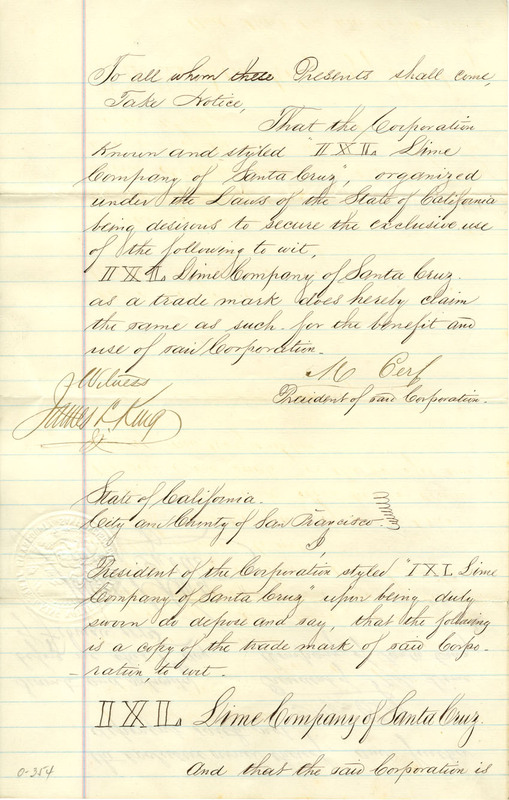 To all whom these Presents shall come,
Take Notice,
That the Corporation
Known and styled "IXL Lime
Company of Santa Cruz", organized
under the Laws of the State of California
being desirous to secure the exclusive use
of the following to wit,
IXL Lime Company of Santa Cruz
as a trade mark does hereby claim
the same as such for the benefit and
use of said Corporation.
M Cerf
President of said Corporation.
Witness
James L. King
Jr
State of California.
City and County of San Francisco
I,
President of the Corporation styled "IXL Lime
Company of Santa Cruz" upon being duly
sworn do depose and say, that the following
is a copy of the trade mark of said Corpo-
-ration, to wit.
IXL Lime Company of Santa Cruz.
And that the said Corporation is
0-354